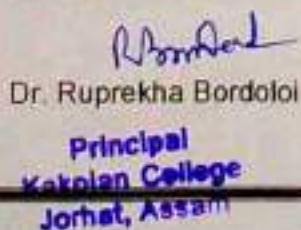 Dr. Ruprekha Bordoloi
Principal
Kakojan College
Jorhat, Assam